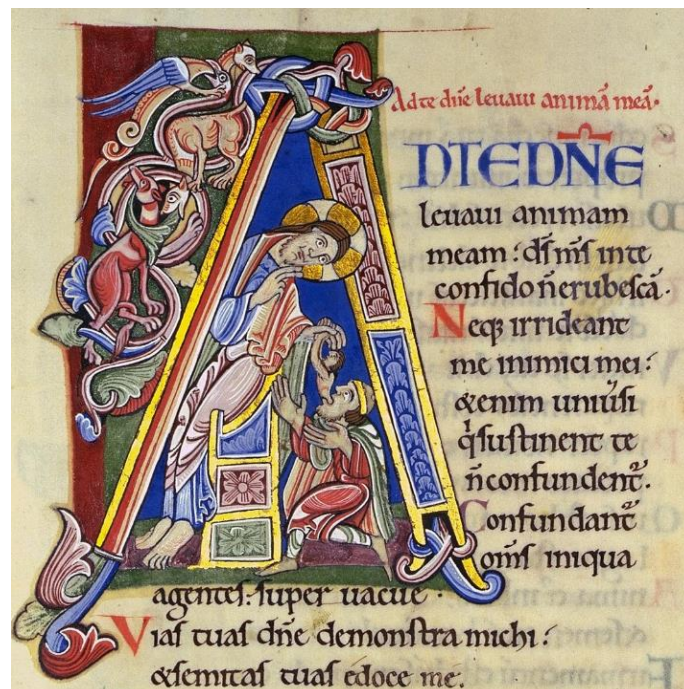 Ad te dn̄e leuaui animā meā.
AD TE DN̄E
leuaui animam
meam : dſ mſ in te
confido n̄ erubeſcā.
Neq; irrideant
me inimici mei :
&enim uniũſi
q̇ ſuſtinent te
n̄ confundent̃.
Confundant̃
om̄ſ iniqua
agentes : ſuper uacue .
Viaſ tuaſ dn̄e demonſtra michi :
&ſemitaſ tuaſ edoce me.